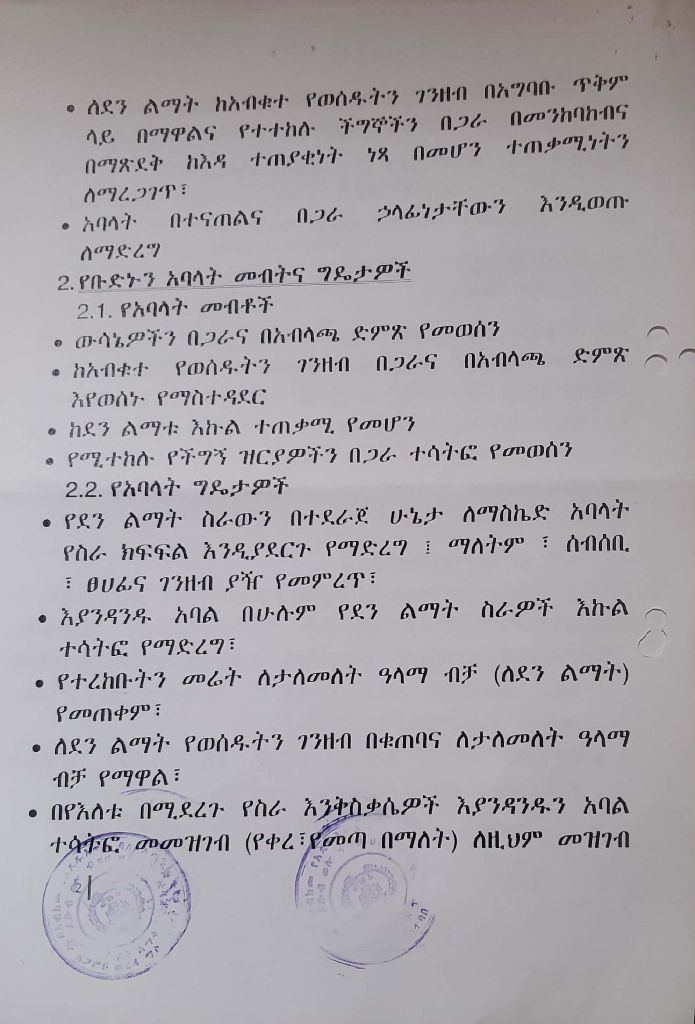 • ለደን ልማት ከአብቁተ የወሰዱትን ገንዘብ በአግባቡ ጥቅም
ላይ በማዋልና የተተከሉ ችግኞችን በጋራ በመንከባከብና
በማጽደቅ ከእዳ ተጠያቂነት ነጻ በመሆን ተጠቃሚነትን
ለማረጋገጥ፣
• አባላት በተናጠልና በጋራ ኃላፊነታቸውን እንዲወጡ
ለማድረግ
2. የቡድኑን አባላት መብትና ግዴታዎች
2.1. የአባላት መብቶች
• ውሳኔዎችን በጋራና በአብላጫ ድምጽ የመወሰን
• ከአብቁተ የወሰዱትን ገንዘብ በጋራና በአብላጫ ድምጽ
እየወሰኑ የማስተዳደር
• ከደን ልማቱ እኩል ተጠቃሚ የመሆን
• የሚተከሉ የችግኝ ዝርያዎችን በጋራ ተሳትፎ የመወሰን
2.2. የአባላት ግዴታዎች
• የደን ልማት ስራውን በተደራጀ ሁኔታ ለማስኬድ አባላት
የስራ ክፍፍል እንዲያደርጉ የማድረግ ፤ ማለትም ፣ ሰብሰቢ
፣ ፀሀፊና ገንዘብ ያዥ የመምረጥ፣
• እያንዳንዱ አባል በሁሉም የደን ልማት ስራዎች እኩል
ተሳትፎ የማድረግ፣
• የተረከቡትን መሬት ለታለመለት ዓላማ ብቻ (ለደን ልማት)
የመጠቀም፣
• ለደን ልማት የወሰዱትን ገንዘብ በቁጠባና ለታለመለት ዓላማ
ብቻ የማዋል፣
• በየእለቱ በሚደረጉ የስራ እንቅስቃሴዎች እያንዳንዱን አባል
ተሳትፎ መመዝገብ (የቀረ፣የመጣ በማለት) ለዚህም መዝገብ
2|